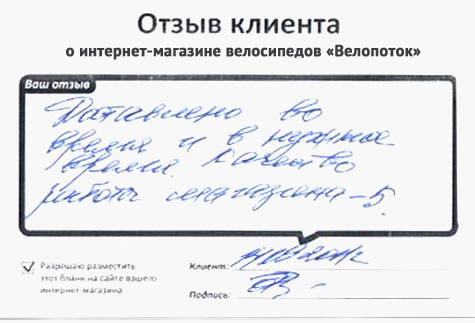 Отзыв клиента
о интернет-магазине велосипедов «Велопоток»
Ваш отзыв
Доставлено во
время и в нужное
время. Качество
работы магазина - 5.
Разрешаю разместить
этот бланк на сайте вашего
интернет-магазина
Клиент:
Подпись: